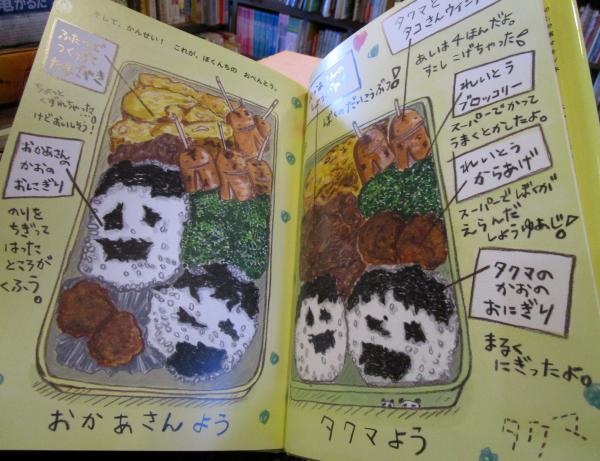 そして、かんせい！ これが、ぼくんちの おべんとう。
ふたりで
つくった
たまごやき
ちょっと
くずれちゃった…
けどおいしそう！
おかあさんの
かおの
おにぎり
のりを
ちぎって
はった
ところが
くふう。
おかあさん よう
タクマと
タコさんウィンナー
あしは4ほんだよ。
すこしこげちゃった。
ぼくのだいこうぶつ！
れいとう
ブロッコリー
スーパーでかって
うまくとかしたよ。
れいとう
からあげ
スーパーでぼくが
えらんだ
しょうゆあじ！
タクマの
かおの
おにぎり
まるく
にぎったよ。
タクマ よう
タクマ